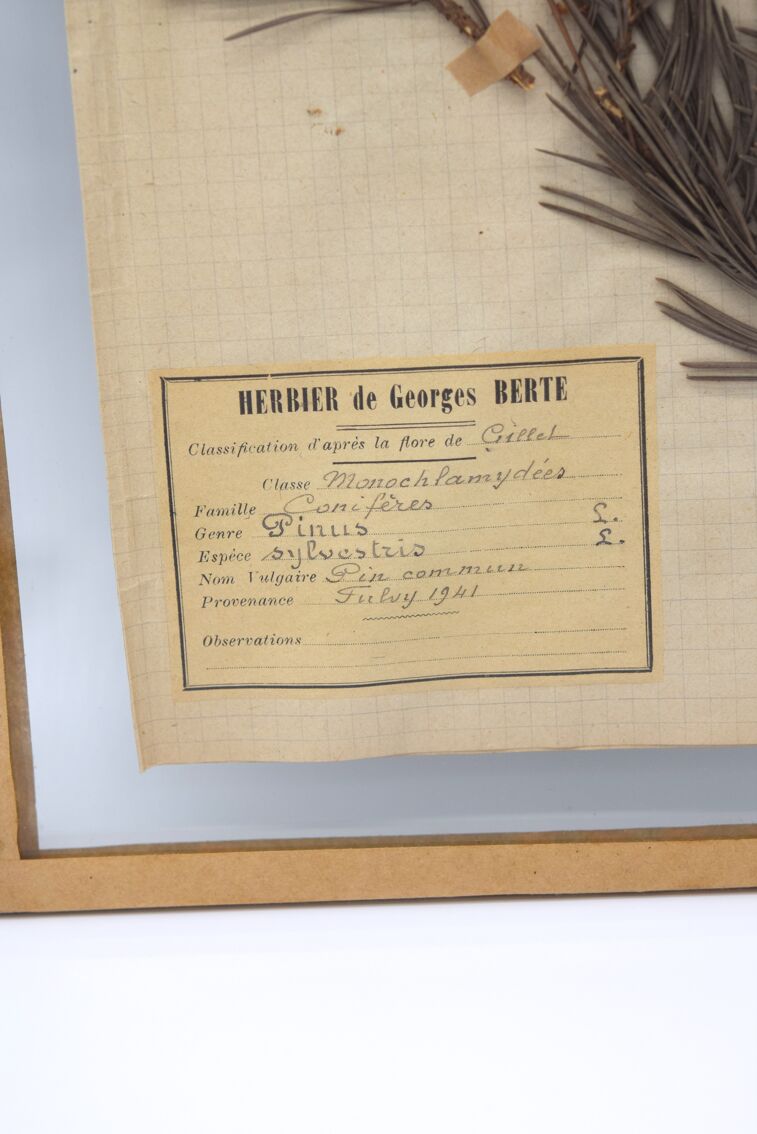 HERBIER de Georges BERTE
Classification d'après la flore de Gillet
Classe Monochlamydées
Famille Conifères
Genre Pinus L.
Espèce sylvestris L.
Nom Vulgaire Pin commun
Provenance Fulvy 1941
Observations